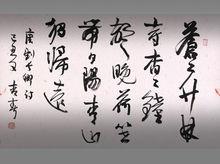 蒼々竹林
寺杳々鐘
聲晚荷笠
帶夕陽青山
獨歸遠
唐劉長卿詩